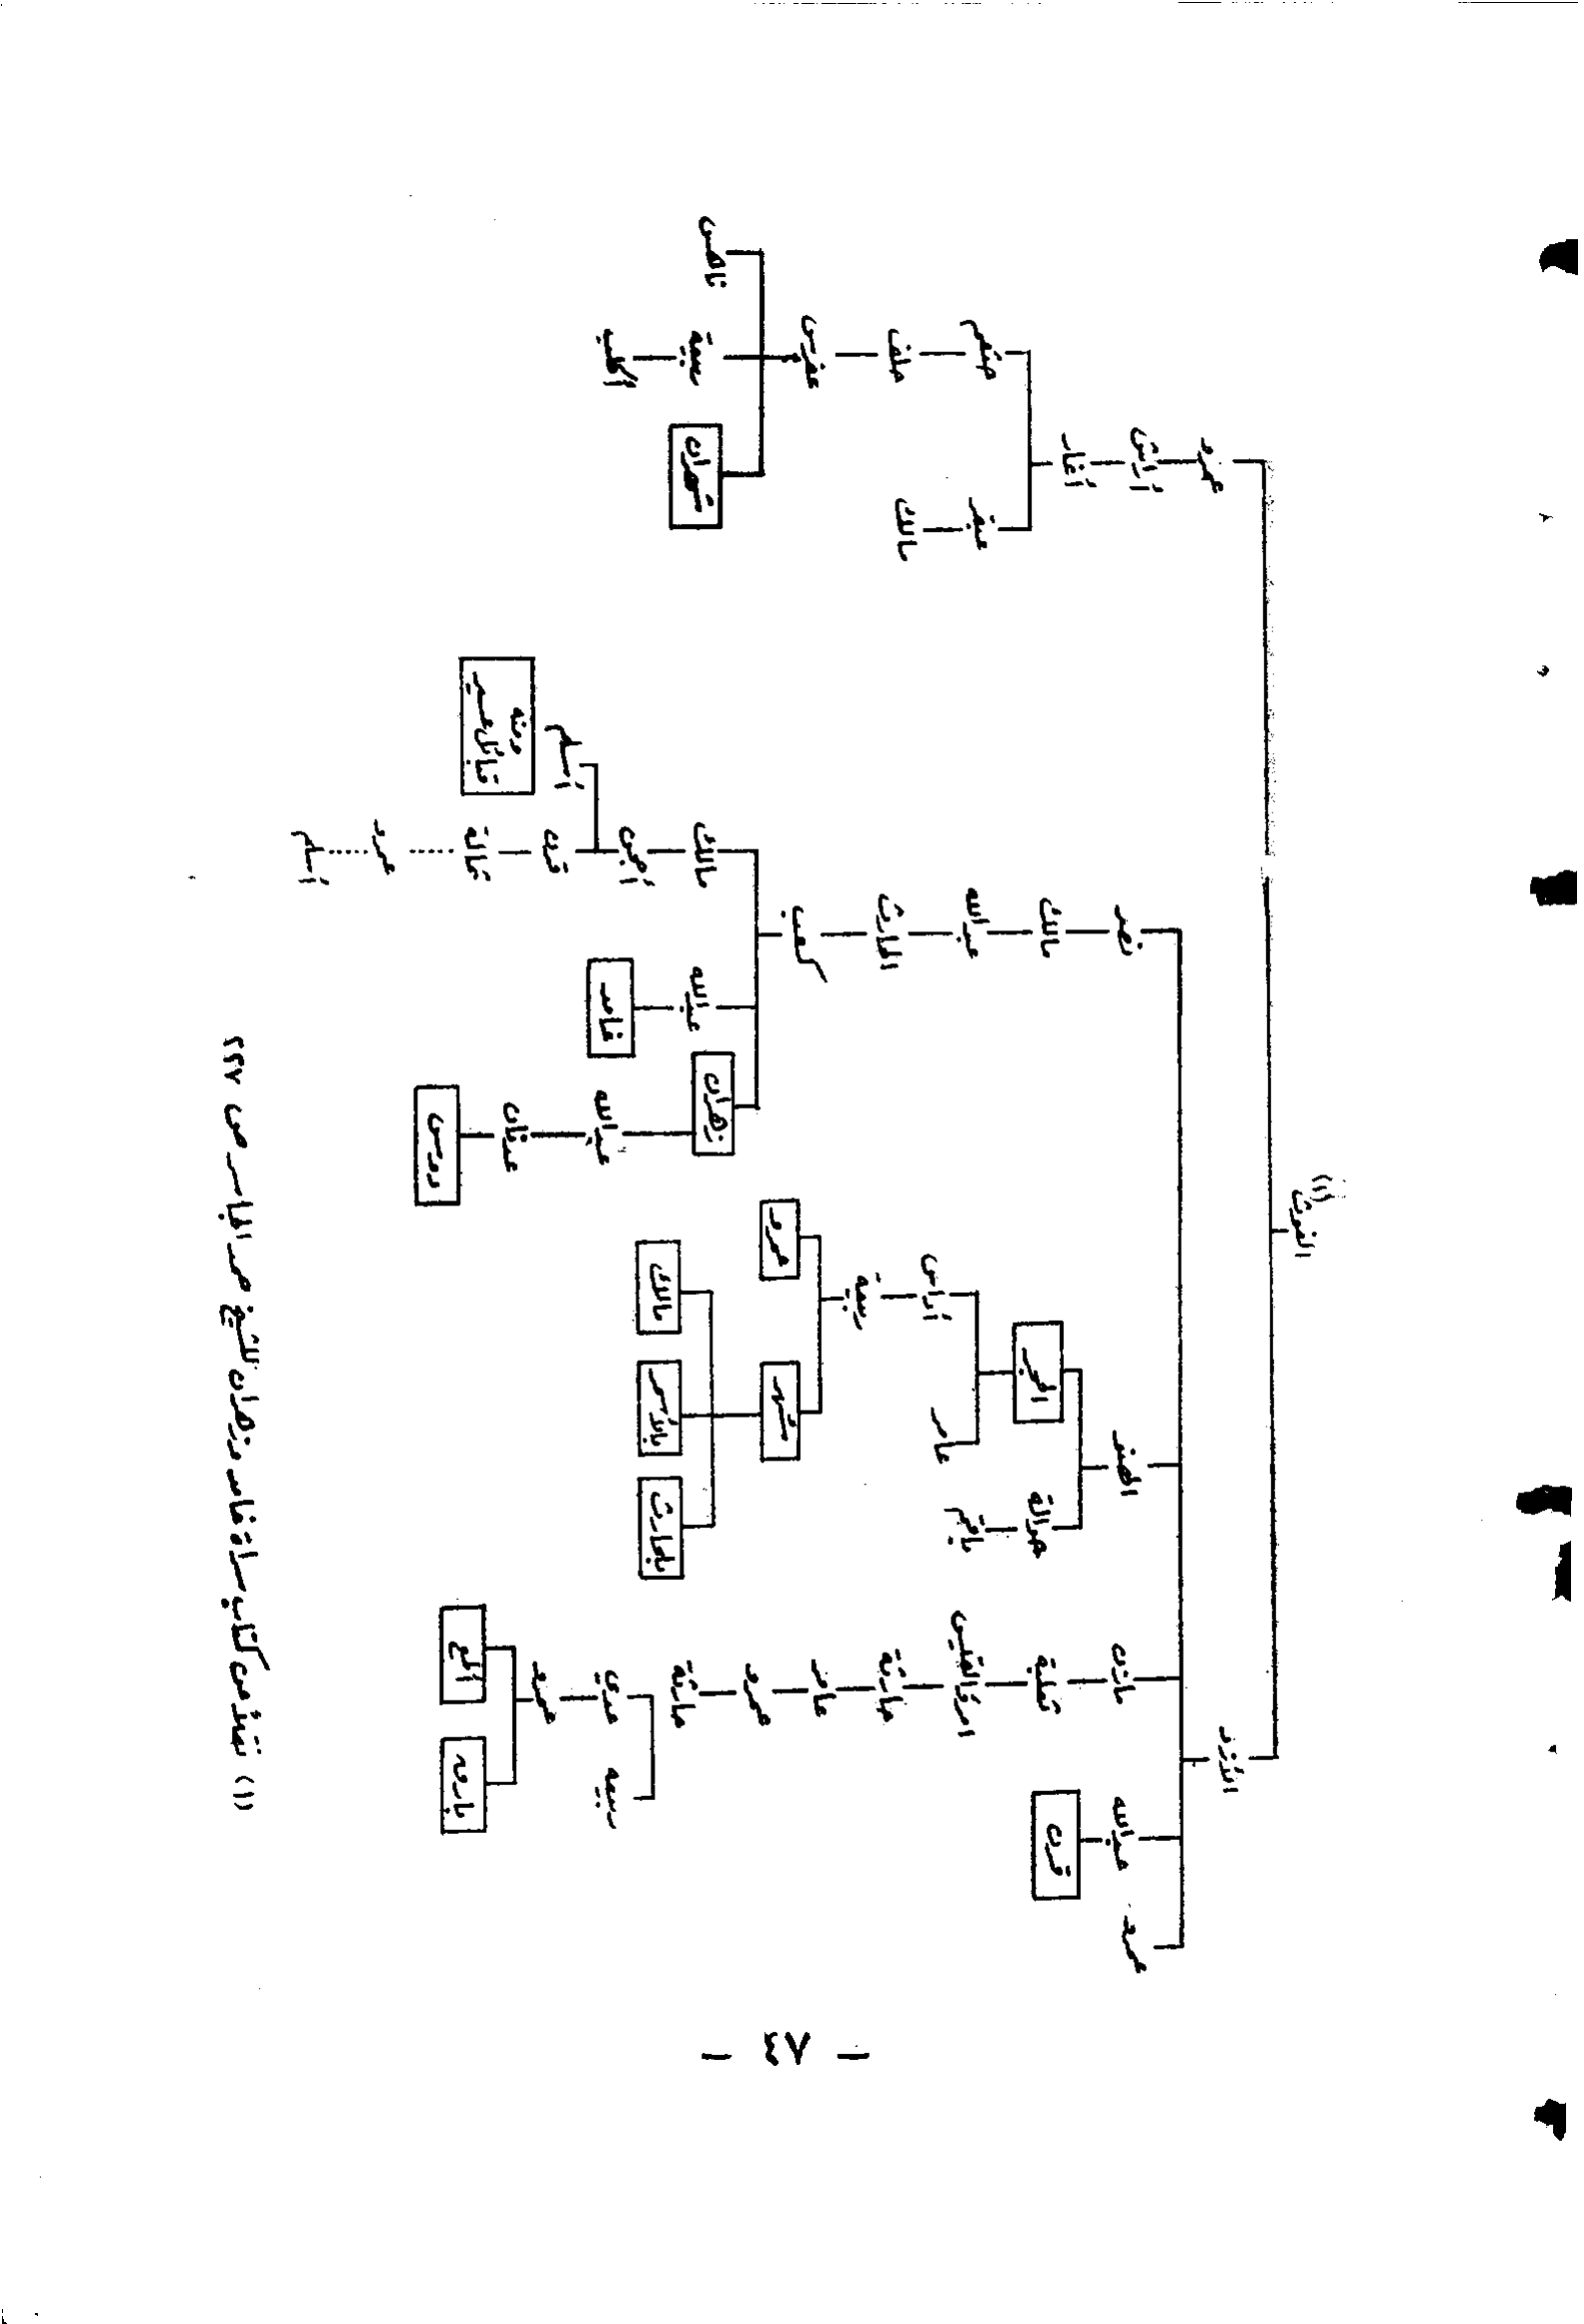 الغوث (١)
الأزد
عمرو
عمرو
عبدالله
قرن
مازن
ثعلبة
امرؤ القيس
حارثة
عامر
عمرو
حارثة
ربيعه
عدي
عمرو
بارقه
ألمع
الهنو
حوالة
ياقم
الحجر
عامر
أواس
ربيعة
شهر
عمرو
بلحارث
بالأسمر
مالك
نصر
مالك
عبدالله
الحارث
كعب
زهران
عبدالله
عدنان
دوس
عبدالله
غامد
مالك
أحجن
أسلم
ومنه قبائل عسير
ثمالة
عمرو
أسلم
أراش
أنمار
عبقر
مالك
خثعم
حلف
عفرس
شهران
ربيعة
أكلب
ناهس
(١) من كتاب سراة غامد وزهران للشيخ حمد الجاسر ص ٢٩٧
— ٤٧ —